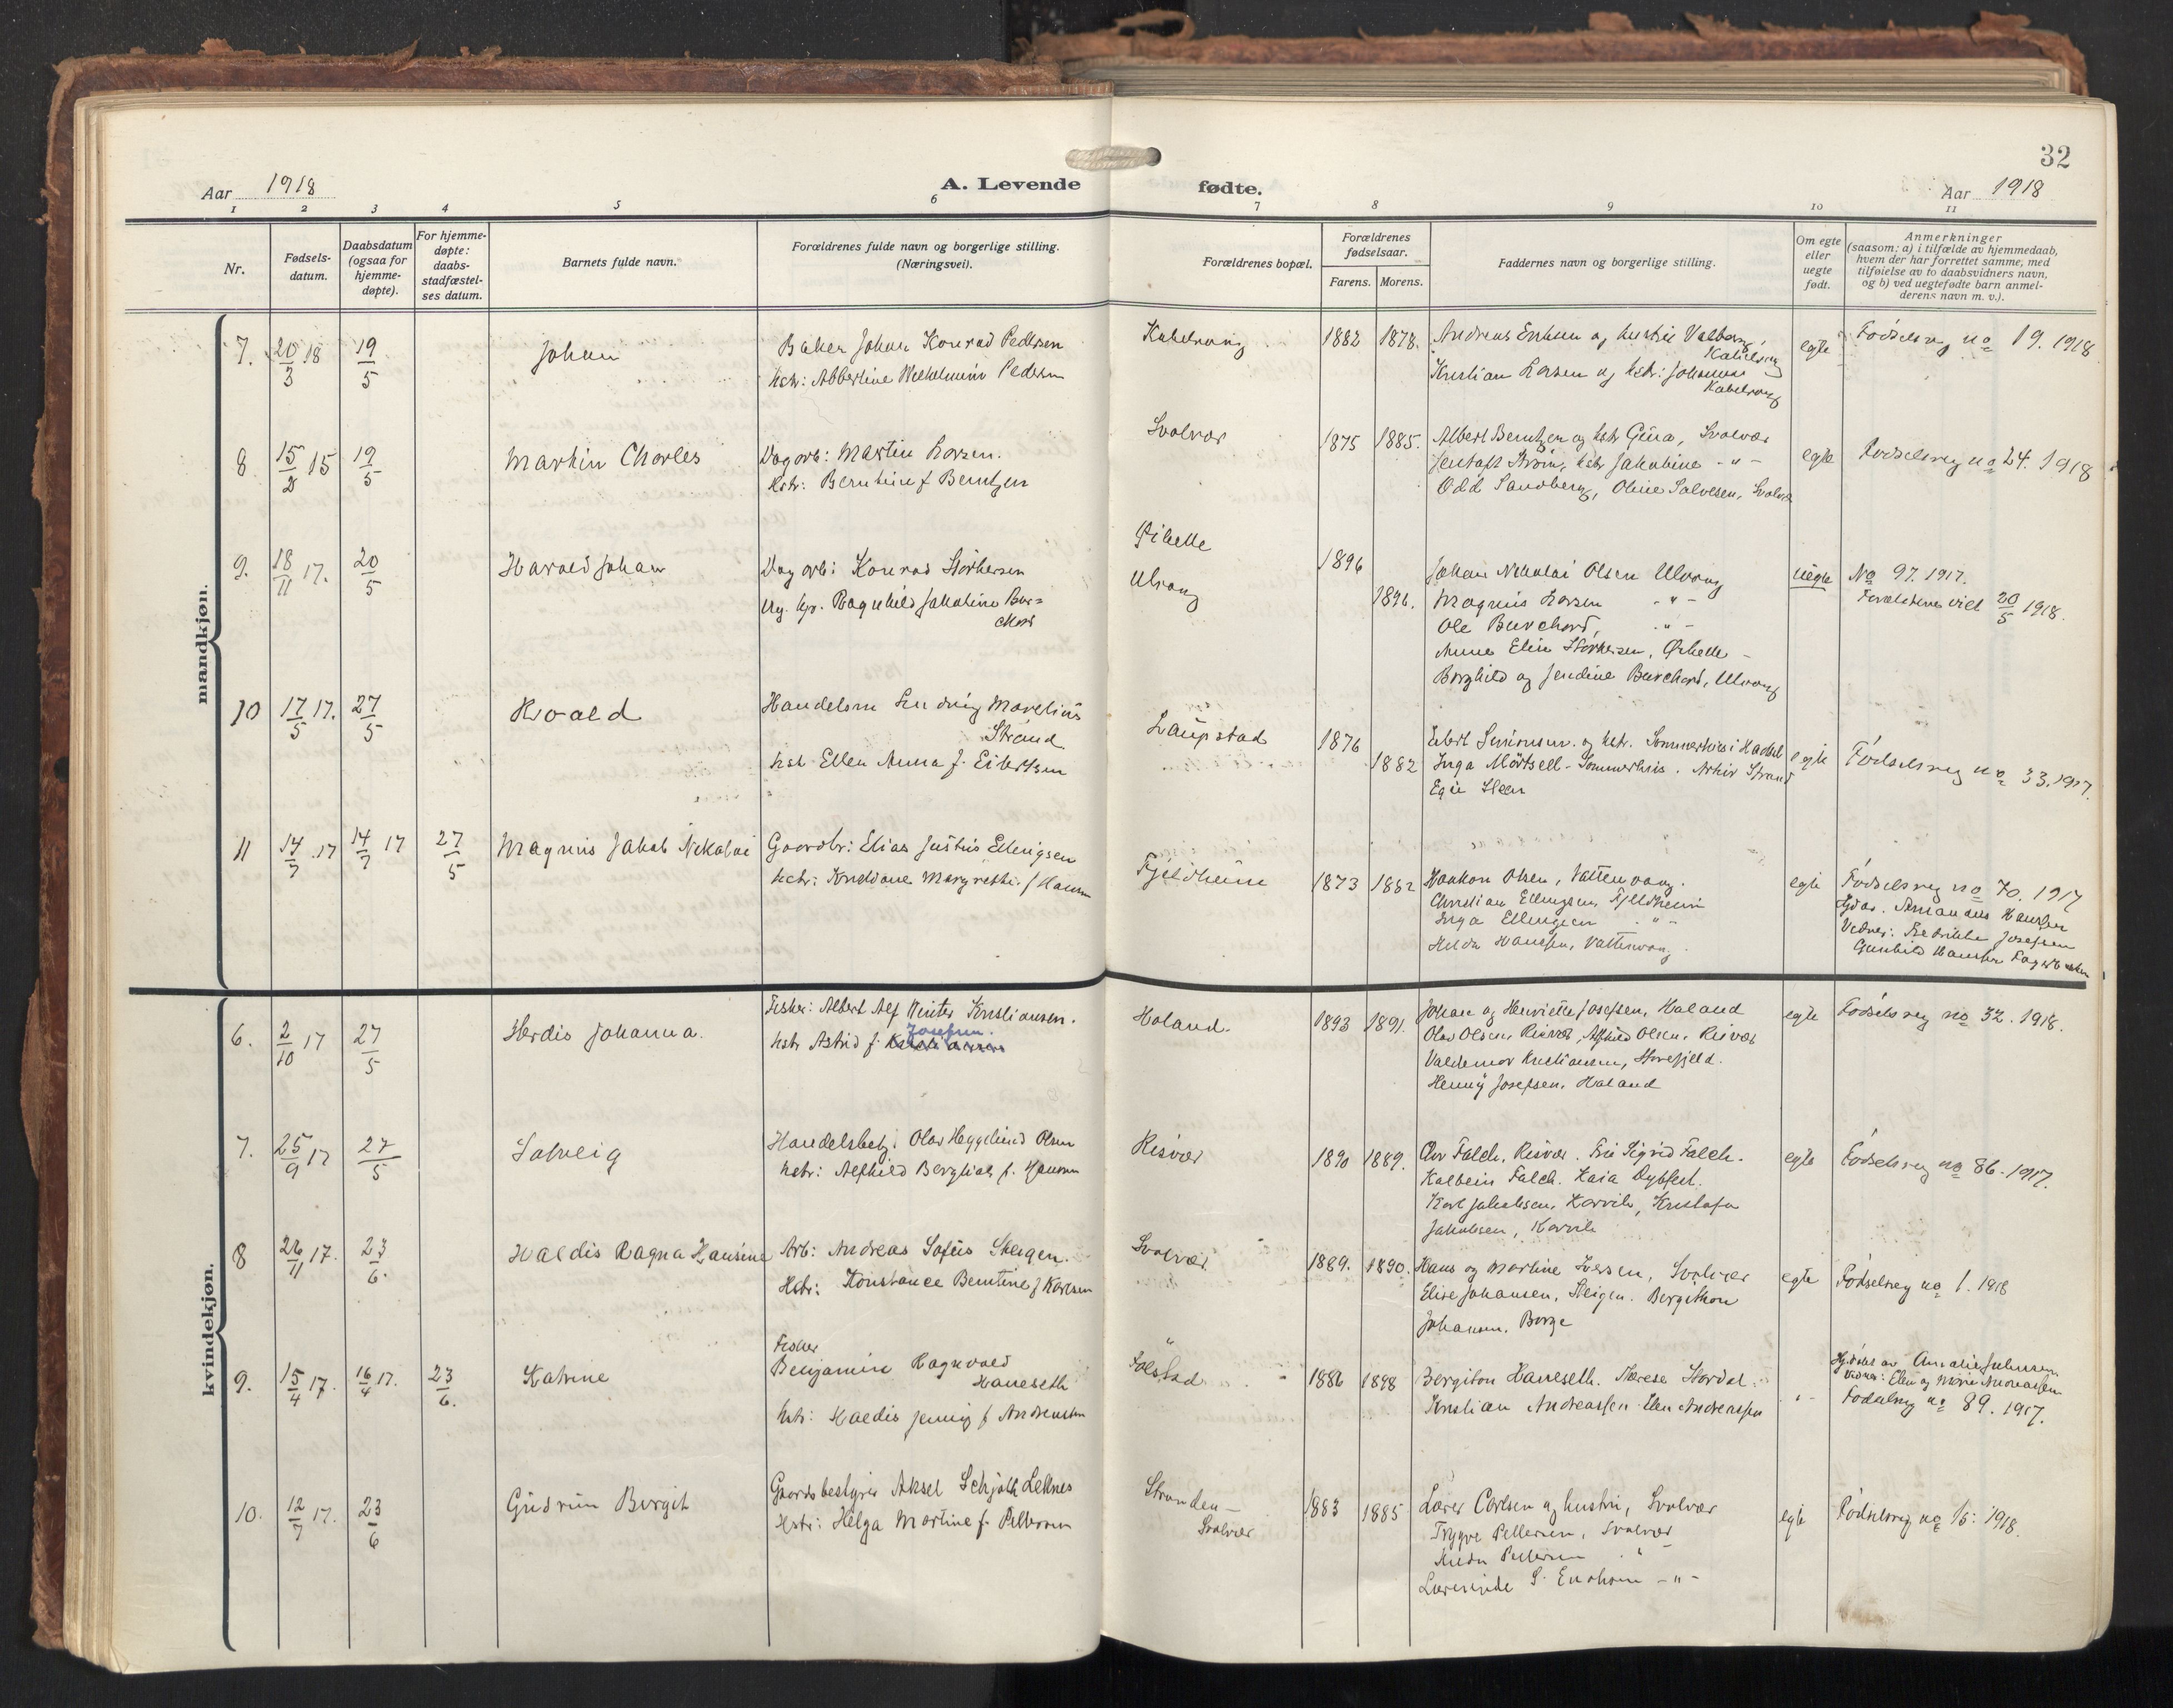 32
Aar 1918
A. Levende fødte.
Aar 1918
1 2 3 4 5 6 7 8 9 10 11
Nr.
Fødsels-
datum.
Daabsdatum
(ogsaa for
hjemme-
døpte).
For hjemme-
døpte:
daabs-
stadfæstel-
ses datum.
Barnets fulde navn.
Forældrenes fulde navn og borgerlige stilling.
(Næringsvei).
Forældrenes bopæl.
Forældrenes
fødselsaar.
Farens. Morens.
Faddernes navn og borgerlige stilling.
Om egte
eller
uegte
født.
Anmerkninger
(saasom: a) i tilfælde av hjemmedaab,
hvem der har forrettet samme, med
tilføielse av to daabsvidners navn,
og b) ved uegtefødte barn anmel-
derens navn m. v.).
mandkjøn.
7. 20/3 18 19/5
Johan
Baker Johan Konrad Pedersen
hstr: Albertine Wilhelmine Pedersen
Kabelvaag
1882 1878.
Andreas Eriksen og hustru Valborg,
Kabelvaag
Kristian Larsen og hstr: Johanna
Kabelvaag
egte
Fødselsreg no 19. 1918
8 15/2 15 19/5
Martin Charles
Dagarb: Martin Larsen.
Hstr: Berntine f Berntzen
Svolvær
1875 1885.
Albert Berntzen og hstr Gina, Svolvær
hstr Jakobine - " -
Odd Sandberg, Oline Salvesen, Svolvær
egte
Fødselsreg no 24. 1918
9. 18/11 17. 20/5
Harald Johan
Dagarb: Konrad Storkersen
Ug. kv. Ragnhild Jakobine Bur=
chard
Ørhelle
Ulvaag
1896
1896.
Johan Nikolai Olsen Ulvaag
Magnus Larsen - " -
Ole Burchard, - " -
Anna Elin Storkersen, Ørhelle -
Borghild og Jendine Burchard, Ulvaag
uegte
No 97. 1917.
Forældrene viet 20/5 1918.
10 17/5 17. 27/5
Hvald
Handelsm Ludvig Marelius
Strand
hstr Ellen Anna f. Eibertsen
Laupstad
1876
1882
Eibert Simonsen og hstr. Sommerhus i Hadsel
Inga Mörtsell - Sommerhus. Arhur Strand
Egil Steen
egte
Fødselsreg no 33. 1917.
11 14/7 17 14/7 17 27/5
Magnus Jakob Nikolai
Gaardbr: Elias Justus Ellingsen
hstr: Krisdane Margrethe f Hansen
Fjeldheim
1873 1882
Haakon Olsen, Vattervaag.
Christian Ellingsen, Fjeldheim
Inga Ellingsen - " -
Helda Hansen, Vattervaag.
egte
Fødselsreg no 70. 1917
Hjdøp. Amandus Hansen
Vidner: Fredrikke Josefsen
Gunhild Hansen
kvindekjøn.
6. 2/10 17 27/5
Herdis Johanna.
Fisker: Albert Alf Winter Kristiansen.
Josefsen.
hstr Astrid f.
Holand.
1893 1891.
Johan og Henriette Josefsen, Holand
Olav Olsen, Risvær, Alfhild Olsen, Risvær
Valdemar Kristiansen, Storefjeld.
Henny Josefsen, Holand
egte
Fødselsreg no 32. 1918.
7. 25/9 17 27/5
Solveig
Handelsbetj: Olav Heggelund Olsen
hstr: Alfhild Bergliot f. Hansen
Risvær
1890 1889.
Olav Falch, Risvær. Fru Sigrid Falch.
Kolbein Falch. Kaia Dybfest.
Karl Jakobsen, Korvik, Kristofa
Jakobsen, Korvik
egte
Fødselsreg no 86. 1917.
8 26/11 17. 23/6.
Haldis Ragna Hansine
Arb: Andreas Sofus Steigen.
Hstr: Konstance Berntine f Karlsen
Svolvær
1889. 1890.
Hans og Martine Iversen, Svolvær
Elise Johansen, Steigen. Bergithon
Johansen, Borge
egte
Fødselsreg no 1. 1918
9. 15/4 17. 16/4 17. 23/6.
Katrine
Fisker
Benjamin Ragnvald
Haneseth
hstr: Haldis Jenny f Andreassen
Følstad
1886 1898
Bergiton Haneseth. Therese Stordal.
Kristian Andreassen Elen Andreassen
- " -
Hjdøbt av Amalie Julsen
Vidner: Elen og Marie Andreassen
Fødselsreg no 89. 1917.
10. 12/7 17. 23/6
Gudrun Birgit
Gaardsbestyrer Aksel Schjøth Leknes
Hstr: Helga Martine f. Pettersen
Stranden -
Svolvær
1883 1885
Lærer Carlsen og hustru, Svolvær
Trygve Pettersen, Svolvær
Pettersen - " -
Lærerinde S. Enoksen - " -
egte
Fødselsreg no 15: 1918.